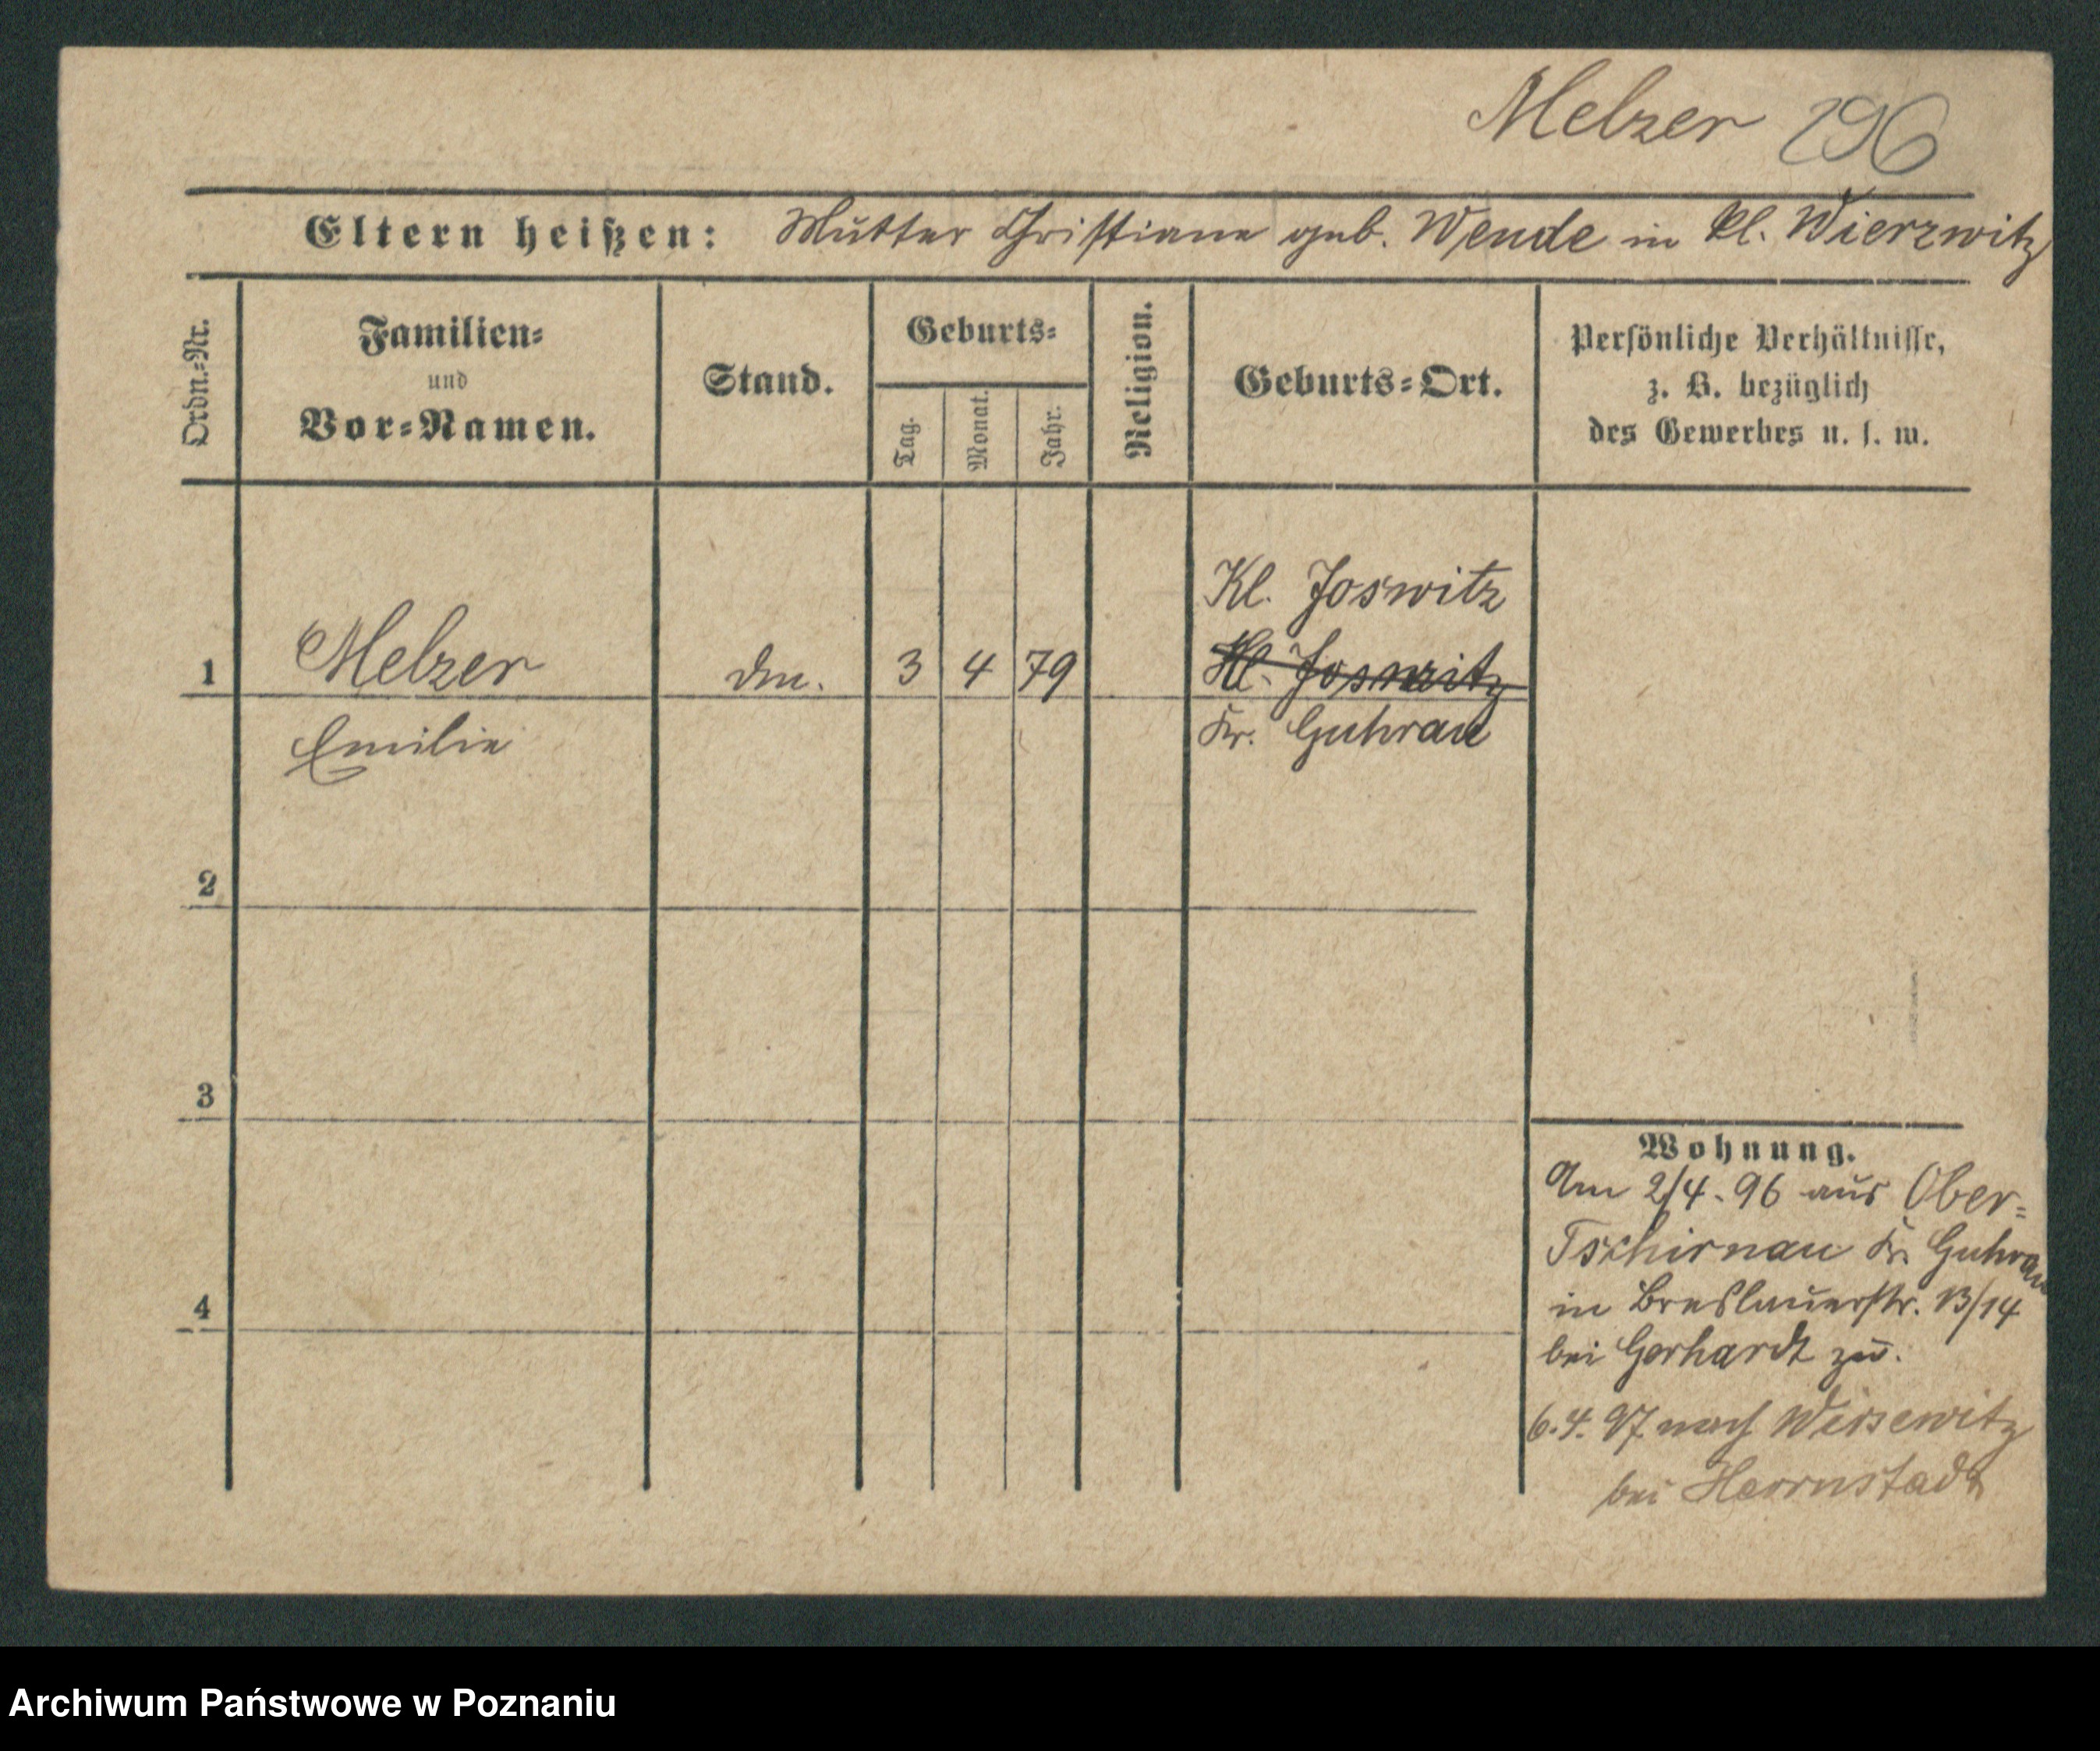 Melzer 296
Eltern heißen: Mutter Christiane geb. Wende in Kl. Wierzwitz
Ordn.-Nr.
Familien- und Vor-Namen.
Stand.
Geburts-
Tag.
Monat.
Jahr.
Religion.
Geburts-Ort.
Persönliche Verhältnisse,
z. B. bezüglich
des Gewerbes u. s. w.
Kl. Joswitz
1 Melzer 3 4 79 Kl. Joswitz
Emilie Kr. Guhrau
2
3
4
Wohnung.
Am 2/4. 96 aus Ober-
Tschirnau Kr. Guhrau
in Breslauerstr. 13/14
bei Gerhardt zu.
6.4.97 nach Weisewitz
bei Herrnstadt
Archiwum Państwowe w Poznaniu